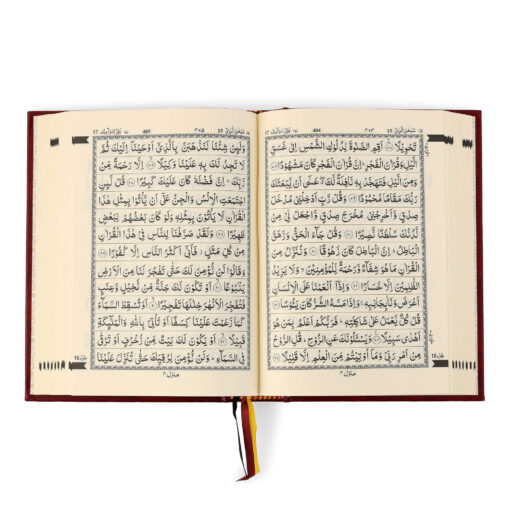 سُبْحٰنَ الَّذِيْٓ 15
404
17
تَحْوِيْلًا ﴿٧٧﴾ اَقِمِ الصَّلٰوةَ لِدُلُوْكِ الشَّمْسِ اِلٰى غَسَقِ
الَّيْلِ وَقُرْاٰنَ الْفَجْرِ ؕ اِنَّ قُرْاٰنَ الْفَجْرِ كَانَ مَشْهُوْدًا ﴿٧٨﴾
وَمِنَ الَّيْلِ فَتَهَجَّدْ بِهٖ نَافِلَةً لَّكَ ۖ عَسٰٓى اَنْ يَّبْعَثَكَ
رَبُّكَ مَقَامًا مَّحْمُوْدًا ﴿٧٩﴾ وَقُلْ رَّبِّ اَدْخِلْنِيْ مُدْخَلَ
صِدْقٍ وَّاَخْرِجْنِيْ مُخْرَجَ صِدْقٍ وَّاجْعَلْ لِّيْ مِنْ
لَّدُنْكَ سُلْطٰنًا نَّصِيْرًا ﴿٨٠﴾ وَقُلْ جَآءَ الْحَقُّ وَزَهَقَ
الْبَاطِلُ ؕ اِنَّ الْبَاطِلَ كَانَ زَهُوْقًا ﴿٨١﴾ وَنُنَزِّلُ مِنَ
الْقُرْاٰنِ مَا هُوَ شِفَآءٌ وَّرَحْمَةٌ لِّلْمُؤْمِنِيْنَ ۙ وَلَا يَزِيْدُ
الظّٰلِمِيْنَ اِلَّا خَسَارًا ﴿٨٢﴾ وَاِذَآ اَنْعَمْنَا عَلَى الْاِنْسَانِ
اَعْرَضَ وَنَاٰ بِجَانِبِهٖ ۚ وَاِذَا مَسَّهُ الشَّرُّ كَانَ يَئُوْسًا ﴿٨٣﴾
قُلْ كُلٌّ يَّعْمَلُ عَلٰى شَاكِلَتِهٖ ؕ فَرَبُّكُمْ اَعْلَمُ بِمَنْ هُوَ
اَهْدٰى سَبِيْلًا ﴿٨٤﴾ وَيَسْـَٔلُوْنَكَ عَنِ الرُّوْحِ ؕ قُلِ الرُّوْحُ
مِنْ اَمْرِ رَبِّيْ وَمَآ اُوْتِيْتُمْ مِّنَ الْعِلْمِ اِلَّا قَلِيْلًا ﴿٨٥﴾
منزل ٤
سُبْحٰنَ الَّذِيْٓ 15
405
17
وَلَئِنْ شِئْنَا لَنَذْهَبَنَّ بِالَّذِيْٓ اَوْحَيْنَآ اِلَيْكَ ثُمَّ
لَا تَجِدُ لَكَ بِهٖ عَلَيْنَا وَكِيْلًا ﴿٨٦﴾ اِلَّا رَحْمَةً مِّنْ
رَّبِّكَ ؕ اِنَّ فَضْلَهٗ كَانَ عَلَيْكَ كَبِيْرًا ﴿٨٧﴾ قُلْ لَّئِنِ
اجْتَمَعَتِ الْاِنْسُ وَالْجِنُّ عَلٰٓى اَنْ يَّاْتُوْا بِمِثْلِ هٰذَا
الْقُرْاٰنِ لَا يَاْتُوْنَ بِمِثْلِهٖ وَلَوْ كَانَ بَعْضُهُمْ لِبَعْضٍ
ظَهِيْرًا ﴿٨٨﴾ وَلَقَدْ صَرَّفْنَا لِلنَّاسِ فِيْ هٰذَا الْقُرْاٰنِ
مِنْ كُلِّ مَثَلٍ ۫ فَاَبٰٓى اَكْثَرُ النَّاسِ اِلَّا كُفُوْرًا ﴿٨٩﴾
وَقَالُوْا لَنْ نُّؤْمِنَ لَكَ حَتّٰى تَفْجُرَ لَنَا مِنَ الْاَرْضِ
يَنْۢبُوْعًا ﴿٩٠﴾ اَوْ تَكُوْنَ لَكَ جَنَّةٌ مِّنْ نَّخِيْلٍ وَّعِنَبٍ
فَتُفَجِّرَ الْاَنْهٰرَ خِلٰلَهَا تَفْجِيْرًا ﴿٩١﴾ اَوْ تُسْقِطَ السَّمَآءَ
كَمَا زَعَمْتَ عَلَيْنَا كِسَفًا اَوْ تَاْتِيَ بِاللّٰهِ وَالْمَلٰٓئِكَةِ
قَبِيْلًا ﴿٩٢﴾ اَوْ يَكُوْنَ لَكَ بَيْتٌ مِّنْ زُخْرُفٍ اَوْ تَرْقٰى
فِي السَّمَآءِ ؕ وَلَنْ نُّؤْمِنَ لِرُقِيِّكَ حَتّٰى تُنَزِّلَ عَلَيْنَا
منزل ٤